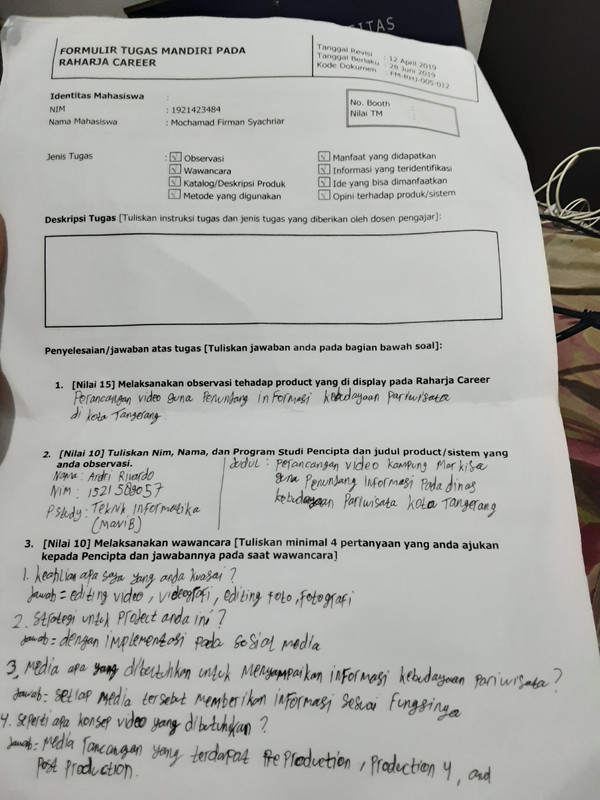 ITAS
FORMULIR TUGAS MANDIRI PADA
RAHARJA CAREER
Tanggal Revisi : 12 April 2019
Tanggal Berlaku : 28 Juni 2019
Kode Dokumen : FM-RHJ-005-012
Identitas Mahasiswa :
NIM : 1921423484
Nama Mahasiswa : Mochamad Firman Syachriar
No. Booth :
Nilai TM :
Jenis Tugas : √ Observasi √ Manfaat yang didapatkan
√ Wawancara √ Informasi yang teridentifikasi
√ Katalog/Deskripsi Produk √ Ide yang bisa dimanfaatkan
√ Metode yang digunakan √ Opini terhadap produk/sistem
Deskripsi Tugas [Tuliskan instruksi tugas dan jenis tugas yang diberikan oleh dosen pengajar]:
Penyelesaian/jawaban atas tugas [Tuliskan jawaban anda pada bagian bawah soal]:
1. [Nilai 15] Melaksanakan observasi tehadap product yang di display pada Raharja Career
Perancangan video guna Penunjang informasi kebudayaan pariwisata
di kota Tangerang
2. [Nilai 10] Tuliskan Nim, Nama, dan Program Studi Pencipta dan judul product/sistem yang
anda observasi.
Nama : Andri Ricardo
Nim : 1521589057
P study : Teknik Informatika
(MaviB)
Judul : perancangan video kampung Markisa
guna Penunjang Informasi Pada dinas
kebudayaan Pariwisata kota Tangerang
3. [Nilai 10] Melaksanakan wawancara [Tuliskan minimal 4 pertanyaan yang anda ajukan
kepada Pencipta dan jawabannya pada saat wawancara]
1. keahlian apa saja yang anda kuasai ?
Jawab = editing video, videografi, editing foto, fotografi
2. Strategi untuk Project anda ini ?
Jawab = dengan implementasi pada sosial media
3. Media apa yang dibutuhkan untuk Menyampaikan informasi kebudayaan pariwisata ?
Jawab = setiap Media tersebut memberikan informasi sesuai fungsinya
4. seperti apa konsep video yang dibutuhkan ?
Jawab = Media rancangan yang terdapat PreProduction, Production 4, and
Post Production.